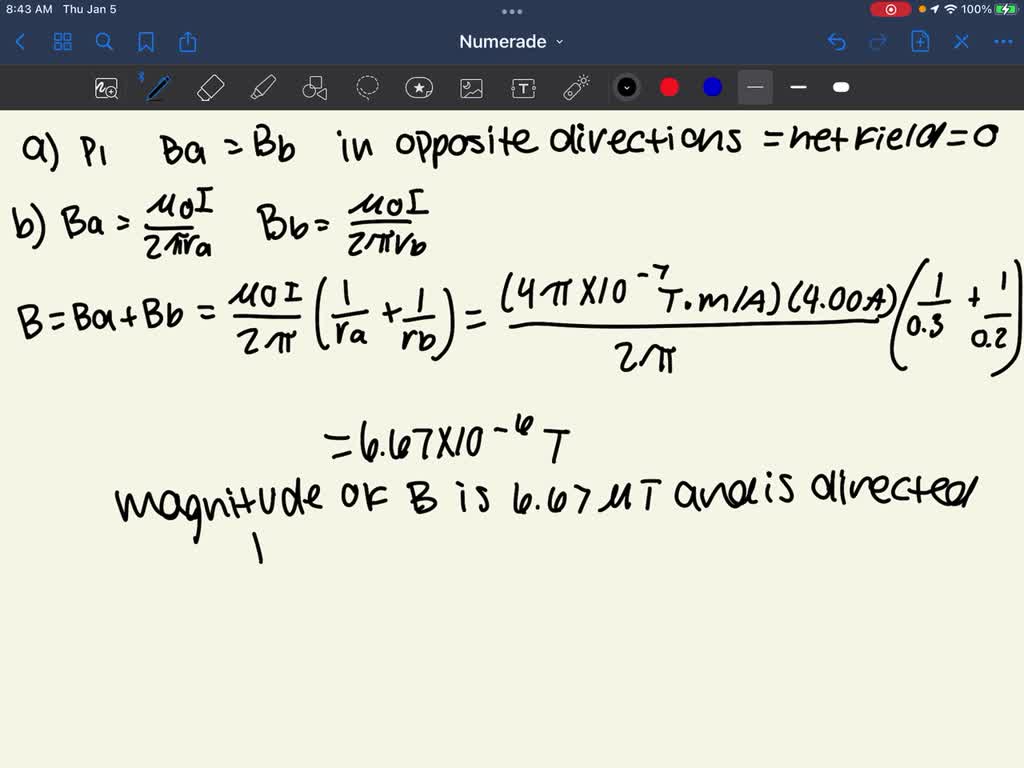 8:43 AM Thu Jan 5
100%
Numerade
a) P1 Ba = Bb in opposite directions = net field = 0
b) Ba = μ0I/2πra Bb = μ0I/2πrb
B = Ba + Bb = μ0I/2π (1/ra + 1/rb) = (4π×10⁻⁷ T·m/A)(4.00A)/2π (1/0.3 + 1/0.2)
= 6.67×10⁻⁶ T
magnitude of B is 6.67 μT and is directed